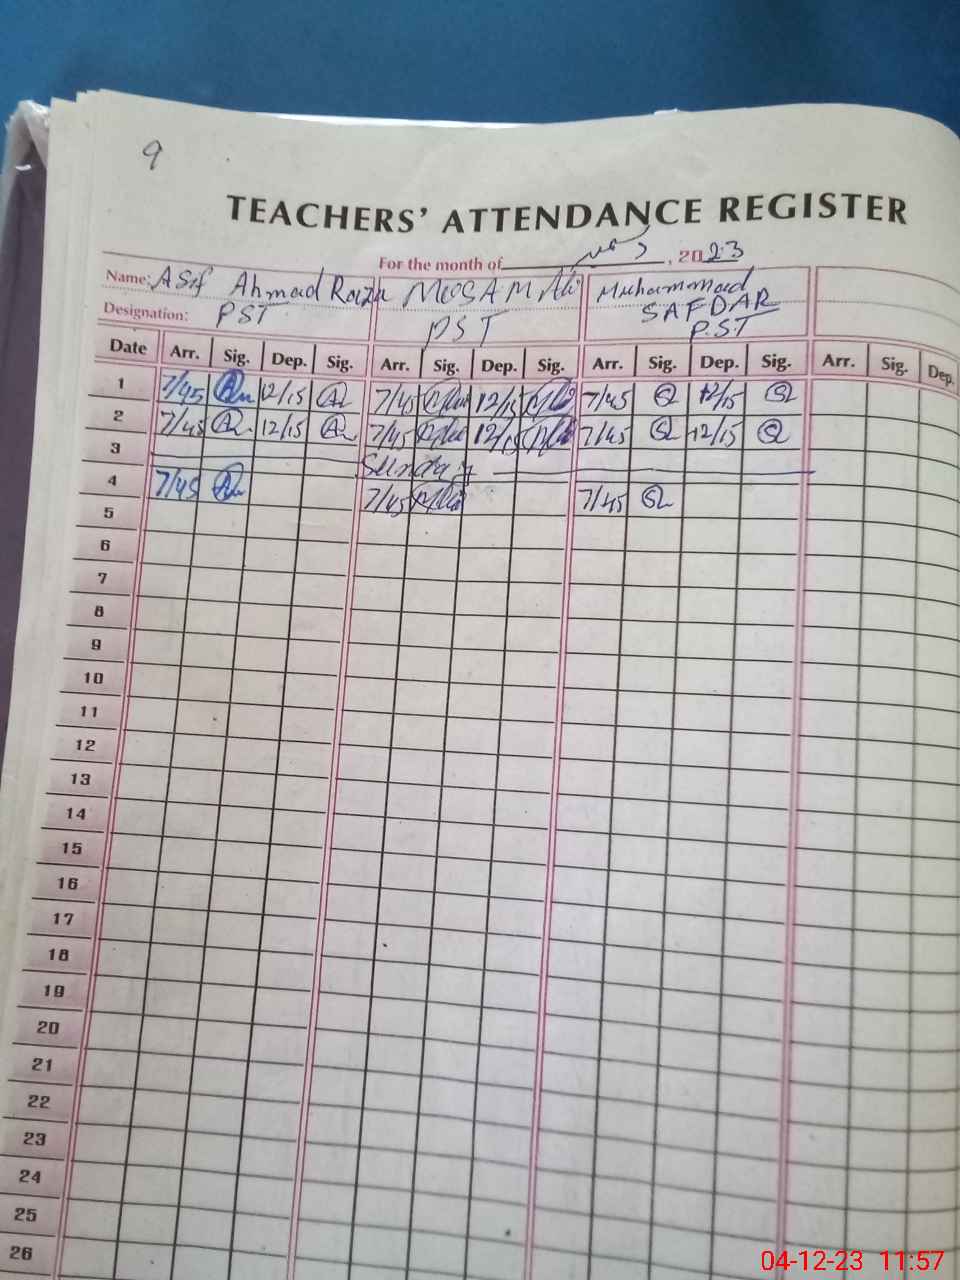 9
TEACHERS' ATTENDANCE REGISTER
For the month of دسمبر, 2023
Name: Asif Ahmad Raza MEESAM Ali Muhammad SAFDAR
Designation: PST PST P.ST
Date Arr. Sig. Dep. Sig. Arr. Sig. Dep. Sig. Arr. Sig. Dep. Sig. Arr. Sig. Dep.
1 7/45 12/15 7/45 12/15 7/45 12/15
2 7/45 12/15 7/45 12/15 7/45 12/15
3 Sunday
4 7/45 7/45 7/45
5
6
7
8
9
10
11
12
13
14
15
16
17
18
19
20
21
22
23
24
25
26
04-12-23 11:57